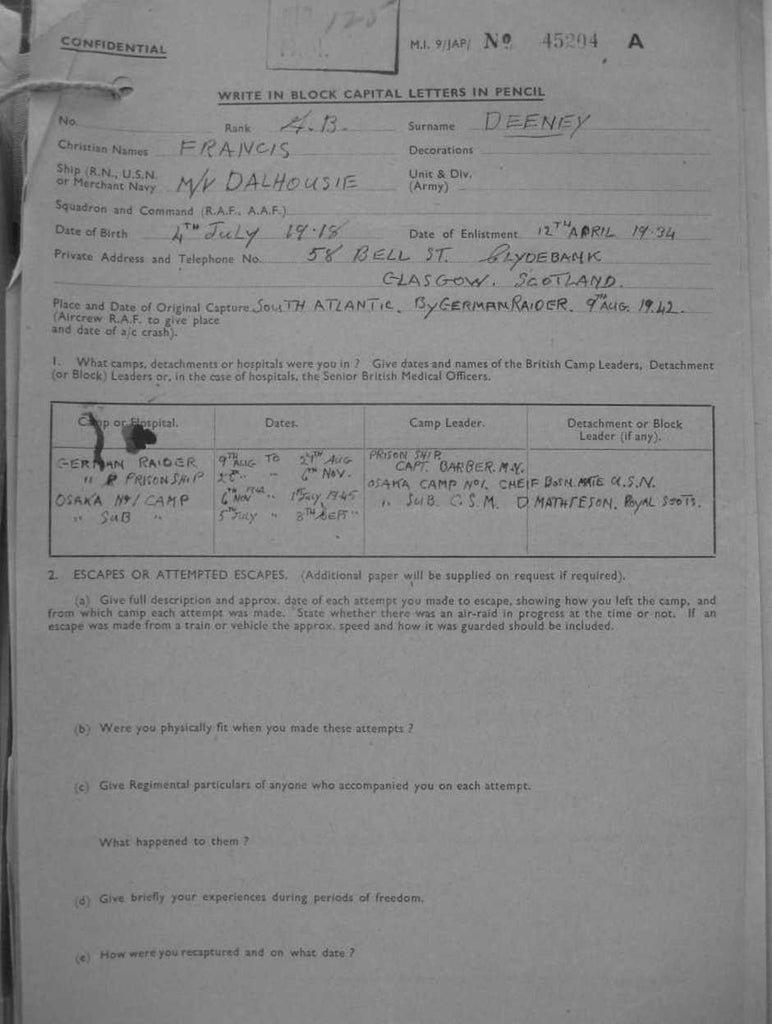 CONFIDENTIAL
120
M.I. 9/JAP/ No 45204 A
WRITE IN BLOCK CAPITAL LETTERS IN PENCIL
No. Rank A.B. Surname DEENEY
Christian Names FRANCIS Decorations
Ship (R.N., U.S.N. or Merchant Navy M/V DALHOUSIE Unit & Div. (Army)
Squadron and Command (R.A.F., A.A.F.)
Date of Birth 4TH July 19·18 Date of Enlistment 12TH APRIL 19·34
Private Address and Telephone No. 58 BELL ST. CLYDEBANK
GLASGOW. SCOTLAND.
Place and Date of Original Capture SOUTH ATLANTIC. By GERMAN RAIDER. 9TH AUG. 19.42.
(Aircrew R.A.F. to give place
and date of a/c crash).
1. What camps, detachments or hospitals were you in ? Give dates and names of the British Camp Leaders, Detachment
(or Block) Leaders or, in the case of hospitals, the Senior British Medical Officers.
Camp or Hospital. Dates. Camp Leader. Detachment or Block
Leader (if any).
GERMAN RAIDER 9TH AUG TO 29TH AUG PRISON SHIP
" & PRISON SHIP " - 6TH NOV. CAPT. BARBER. M.N.
OSAKA No 1 CAMP 6TH NOV 1942 " 1st July 1945 OSAKA CAMP No 1. CHEIF BOSN. MATE U.S.N.
" SUB " 5TH July " 8TH SEPT " " SUB. C.S.M. D. MATHIESON. ROYAL SCOTS.
2. ESCAPES OR ATTEMPTED ESCAPES. (Additional paper will be supplied on request if required).
(a) Give full description and approx. date of each attempt you made to escape, showing how you left the camp, and
from which camp each attempt was made. State whether there was an air-raid in progress at the time or not. If an
escape was made from a train or vehicle the approx. speed and how it was guarded should be included.
(b) Were you physically fit when you made these attempts ?
(c) Give Regimental particulars of anyone who accompanied you on each attempt.
What happened to them ?
(d) Give briefly your experiences during periods of freedom.
(e) How were you recaptured and on what date ?